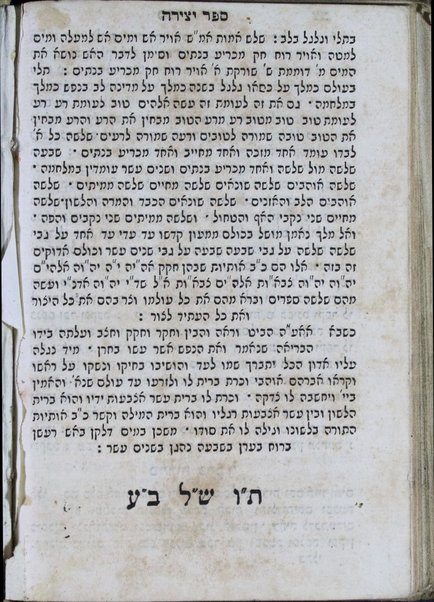 ספר יצירה
בתלי וגלגל בלב : שלש אמות אמ"ש אויר אש ומים אש למעלה ומים
למטה ואויר רוח חק מכריע בנתים וסימן לדבר האש נושא את
המים מ' דוממת ש' שורקת א' אויר רוח חק מכריע בנתים : תלי
בעולם כמלך על כסאו גלגל בשנה כמלך על מדינה לב בנפש כמלך
במלחמה · גם את זה לעומת זה עשה אלהים טוב לעומת רע רע
לעומת טוב טוב מטוב רע מרע הטוב מבחין את הרע והרע מבחין
את הטוב טובה שמורה לטובים ורעה שמורה לרעים שלשה כל א'
לבדו עומד אחד מזכה ואחד מחייב ואחד מכריע בנתים · שבעה
שלשה מול שלשה ואחד מכריע בנתים ושנים עשר עומדין במלחמה ·
שלשה אוהבים שלשה שונאים שלשה מחיים שלשה ממיתים · שלשה
אוהבים הלב והאזנים · שלשה שונאים הכבד והמרה והלשון שלשה
מחיים שני נקבי האף והטחול · ושלשה ממיתים שני נקבים והפה ·
ואל מלך נאמן מושל בכולם ממעון קדשו עד עדי עד אחד על גבי
שלשה שלשה על גבי שבעה שבעה על גבי שנים עשר וכולם אדוקים
זה בזה · אלו הם כ"ב אותיות שבהן חקק אה"יה י"ה יה"וה אלהי"ם
יה"וה יה"וה צבא"ות אלה"ים צבא"ות א"ל שד"י יה"וה אדנ"י ועשה
מהם שלשה ספרים וברא מהם את כל עולמו וצר בהם את כל היצור
ואת כל העתיד לצור :
כשבא אאע"ה הביט וראה והבין וחקר וחקק וחצב ועלתה בידו
הבריאה שנאמר ואת הנפש אשר עשו בחרן · מיד נגלה
עליו אדון הכל יתברך שמו לעד והושיבו בחיקו ונשקו על ראשו
וקראו אברהם אוהבי וכרת ברית לו ולזרעו עד עולם שנא' והאמין
ביי' ויחשבה לו צדקה · וכרת לו ברית עשר אצבעות ידיו והוא ברית
הלשון ובין עשר אצבעות רגליו והוא ברית המילה וקשר כ"ב אותיות
התורה בלשונו וגילה לו את סודו · משכן במים דלקן באש רעשן
ברוח בערן בשבעה נהגן בשנים עשר :
ת"ו ש"ל ב"ע